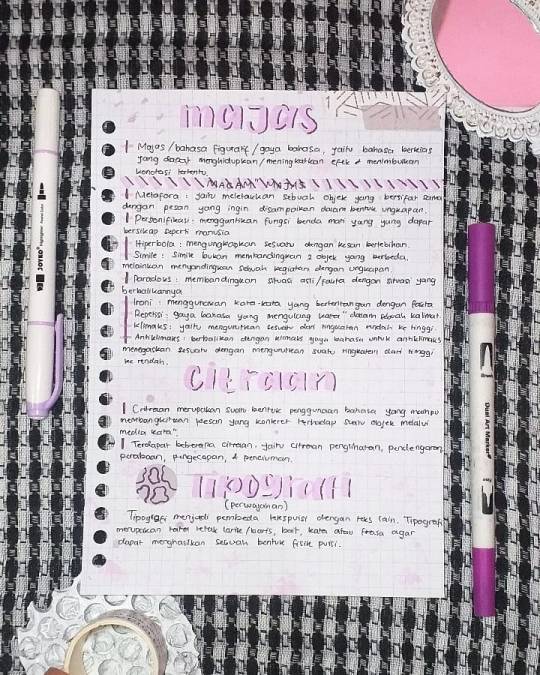 majas
Majas/bahasa figuratif/gaya bahasa, yaitu bahasa berkias
yang dapat menghidupkan/meningkatkan efek & menimbulkan
konotasi tertentu.
MACAM" MAJAS
Metafora : yaitu meletakkan sebuah objek yang bersifat sama
dengan pesan yang ingin disampaikan dalam bentuk ungkapan.
Personifikasi : menggantikan fungsi benda mati yang yang dapat
bersikap seperti manusia
Hiperbola : mengungkapkan sesuatu dengan kesan berlebihan.
Simile : Simile bukan membandingkan 2 objek yang berbeda,
melainkan menyandingkan sebuah kegiatan dengan ungkapan.
Paradoks : membandingkan situasi asli/fakta dengan situasi yang
berbalikannya
Ironi : menggunakan kata-kata yang bertentangan dengan fakta
Repetisi : gaya bahasa yang mengulang kata" dalam sebuah kalimat.
Klimaks : yaitu mengurutkan sesuatu dari tingkatan rendah ke tinggi.
Antiklimaks : berbalikan dengan klimaks gaya bahasa untuk antiklimaks
menegaskan sesuatu dengan mengurutkan suatu tingkatan dari tinggi
ke rendah.
Citraan
Citraan merupakan suatu bentuk penggunaan bahasa yang mampu
membangkitkan kesan yang konkret terhadap suatu objek melalui
media kata".
Terdapat beberapa citraan. yaitu citraan penglihatan, pendengaran,
perabaan, pengecapan, & penciuman.
Tipografi
(perwajahan)
Tipografi menjadi pembeda teks puisi dengan teks lain. Tipografi
merupakan tata letak larik/baris, bait, kata atau frasa agar
dapat menghasilkan sebuah bentuk fisik puisi.
JOYKO
Dual Art Marker